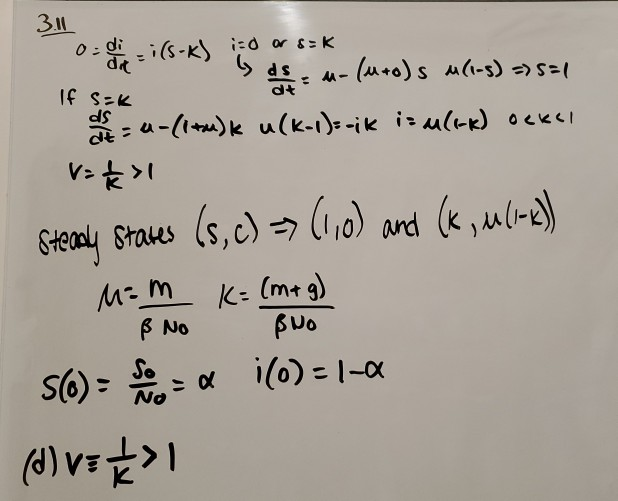 3.11
0 = di/dt = i(s-k) i=0 or s=k
↳ ds/dt = μ-(μ+0)s μ(1-s) => s=1
If s=k
ds/dt = μ-(1+μ)k u(k-1)=-ik i=μ(1-k) 0<k<1
v = 1/k > 1
Steady states (s,c) => (1,0) and (k, μ(1-k))
μ = m/β No k = (m+g)/βNo
S(0) = So/No = α i(0) = 1-α
(d) v ≡ 1/k > 1